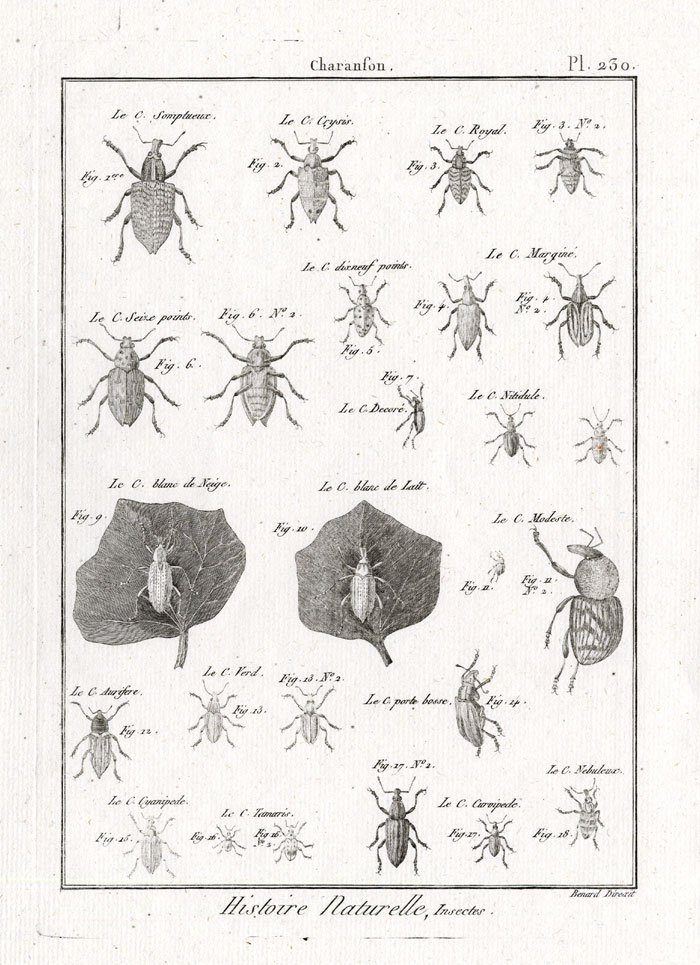 Charanson.
Pl. 230.
Le C. Somptueux.
Fig. 1ere
Le C. Crysis.
Fig. 2.
Le C. Royal.
Fig. 3.
Fig. 3. No. 2.
Le C. dixneuf points.
Fig. 5.
Le C. Marginé.
Fig. 4.
Fig. 4.
No. 2.
Le C. Seize points.
Fig. 6.
Fig. 6. No. 2.
Fig. 7.
Le C. Decoré.
Le C. Nitidule.
Le C. blanc de Neige.
Fig. 9.
Le C. blanc de Lait.
Fig. 10.
Le C. Modeste.
Fig. 11.
Fig. 11.
No. 2.
Le C. Aurifere.
Fig. 12.
Le C. Verd.
Fig. 13.
Fig. 13. No. 2.
Le C. porte bosse.
Fig. 14.
Le C. Cyanipede.
Fig. 15.
Le C. Tamaris.
Fig. 16.
Fig. 16.
No. 2.
Fig. 17. No. 2.
Le C. Curvipede.
Fig. 17.
Le C. Nebuleux.
Fig. 18.
Benard Direxit
Histoire Naturelle, Insectes.